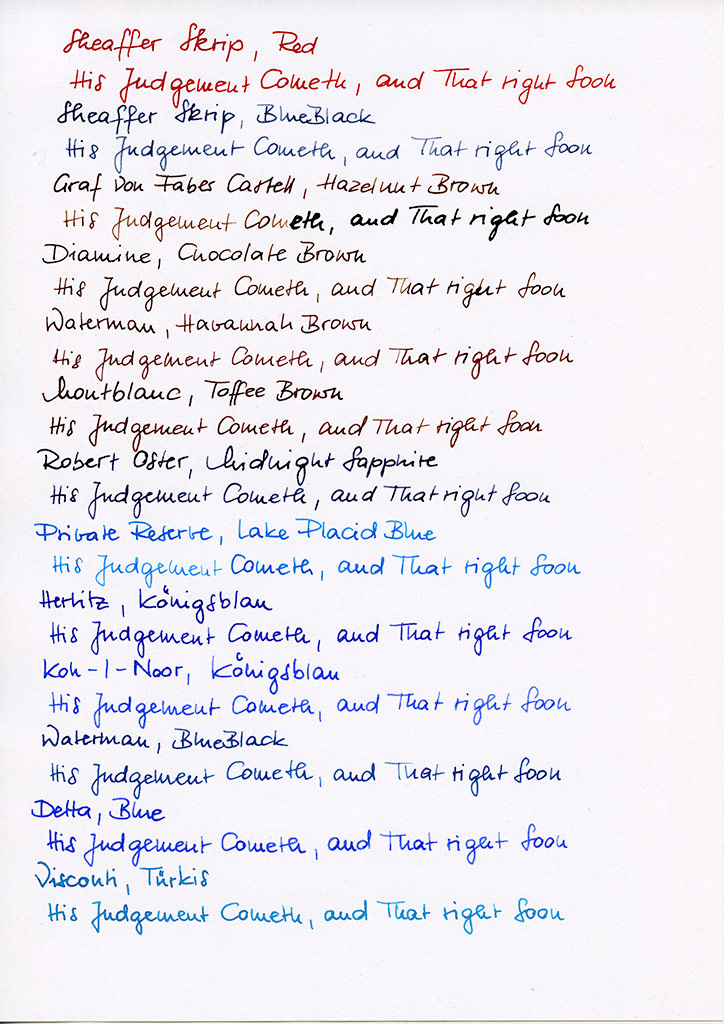 Sheaffer Skrip, Red
His Judgement Cometh, and That right Soon
Sheaffer Skrip, BlueBlack
His Judgement Cometh, and That right Soon
Graf von Faber Castell, Hazelnut Brown
His Judgement Cometh, and That right Soon
Diamine, Chocolate Brown
His Judgement Cometh, and That right Soon
Waterman, Havannah Brown
His Judgement Cometh, and That right Soon
Montblanc, Toffee Brown
His Judgement Cometh, and That right Soon
Robert Oster, Midnight Sapphire
His Judgement Cometh, and That right Soon
Private Reserve, Lake Placid Blue
His Judgement Cometh, and That right Soon
Herlitz, Königsblau
His Judgement Cometh, and That right Soon
Koh-I-Noor, Königsblau
His Judgement Cometh, and That right Soon
Waterman, BlueBlack
His Judgement Cometh, and That right Soon
Delta, Blue
His Judgement Cometh, and That right Soon
Visconti, Türkis
His Judgement Cometh, and That right Soon